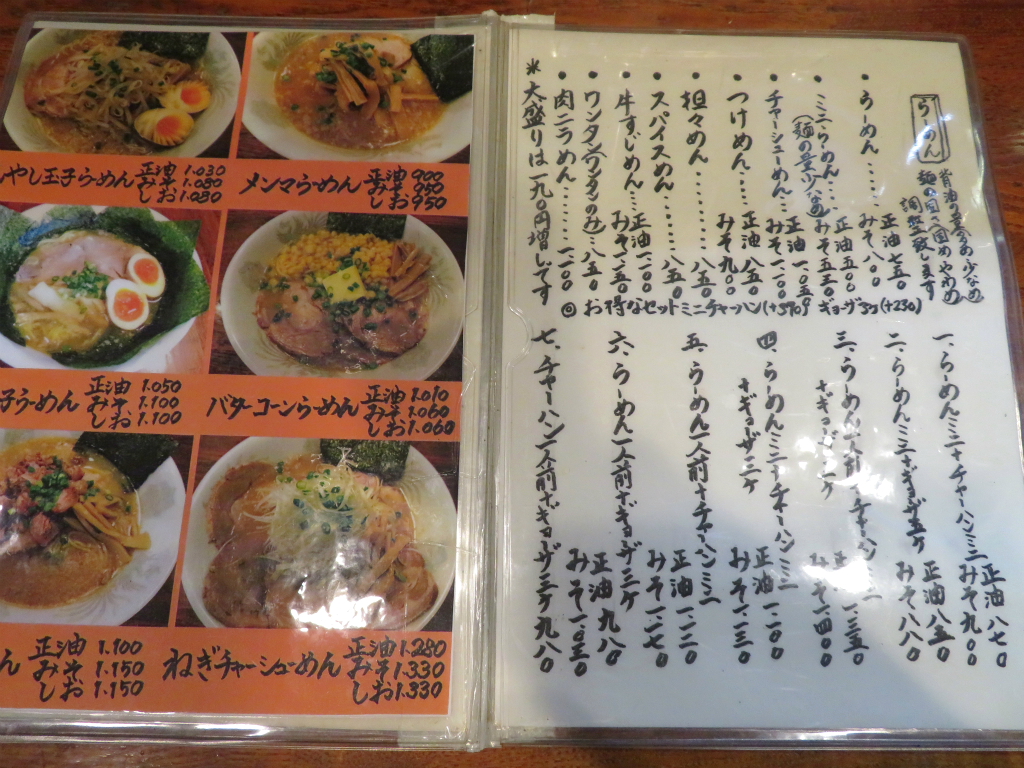 やし玉子らーめん
正油 1.030
みそ 1.080
しお 1.080
メンマらーめん
正油 900
みそ 950
しお 950
子らーめん
正油 1.050
みそ 1.100
しお 1.100
バターコーンらーめん
正油 1.010
みそ 1.060
しお 1.060
ん
正油 1.100
みそ 1.150
しお 1.150
ねぎチャーシューめん
正油 1.280
みそ 1.330
しお 1.330
らーめん
背油の多め少なめ
麺の固さ固めやわめ
調整致します
・らーめん……
正油 七五〇
みそ 八〇〇
・ミニらーめん…
(麺の量少なめ)
正油 五〇〇
みそ 五五〇
・チャーシューめん…
正油 一.〇〇〇
みそ 一.〇五〇
・つけめん……
正油 八五〇
みそ 九〇〇
・担々めん………八五〇
・スパイスめん………八五〇
・牛すじめん…
正油 一.一〇〇
みそ 一.一五〇
・ワンタン(ワンタンのみ)…八五〇
・肉ニラめん………一.一〇〇
※大盛りは一九〇円増しです
◎お得なセット ミニチャーハン(+370) ギョーザ3ケ(+230)
一、らーめんミニ+チャーハンミニ
正油 八七〇
みそ 九〇〇
二、らーめんミニ+ギョーザ五ケ
正油 八五〇
みそ 八八〇
三、らーめん一人前+チャーハンミニ
+ギョーザ三ケ
みそ 一.四〇〇
四、らーめんミニ+チャーハンミニ
+ギョーザ三ケ
正油 一.一〇〇
みそ 一.一三〇
五、らーめん一人前+チャーハンミニ
正油 一.一二〇
みそ 一.一七〇
六、らーめん一人前+ギョーザ三ケ
正油 九八〇
みそ 一.〇三〇
七、チャーハン一人前+ギョーザ三ケ 九八〇